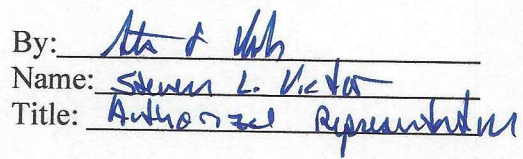 By:
Name: Steven L. Victor
Title: Authorized Representative